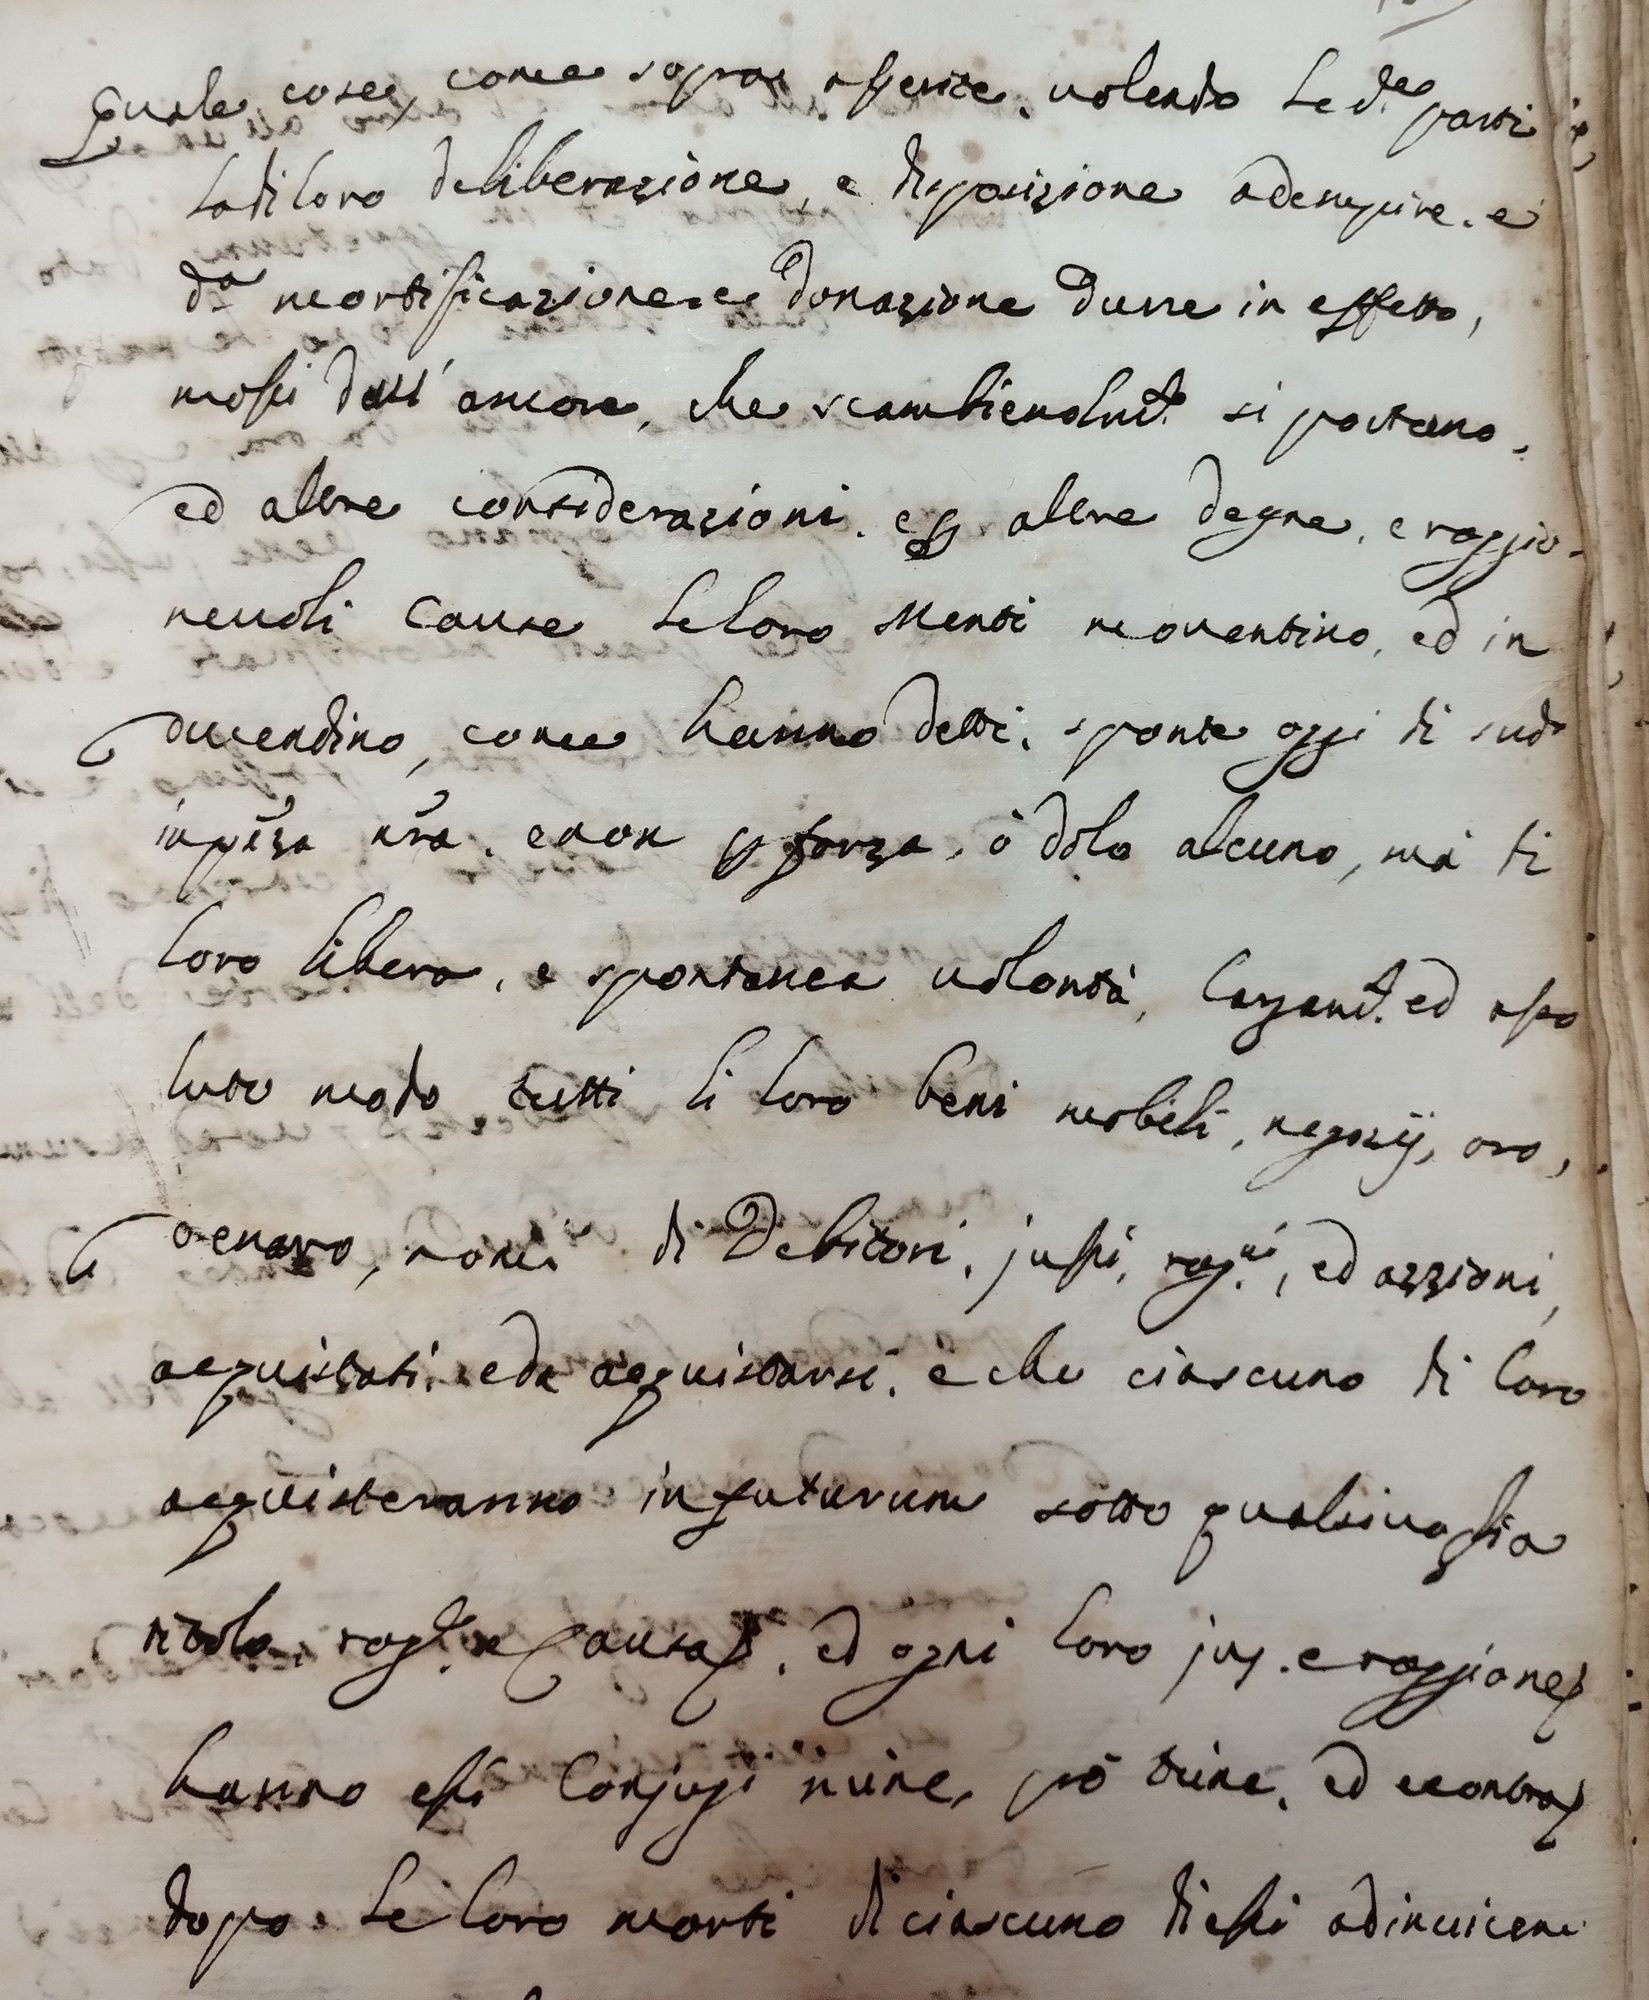 Quale cose, come sopra asserite, volendo le d.te parti
la di loro deliberazione, e disposizione adempire, e
d.a mortificazione, e donazione durre in effetto,
mossi dall' amore, che scambievolm.te si portano,
ed altre considerazioni, e p altre degne, e raggio-
nevoli cause le loro Menti moventino, ed in
ducendino, come hanno detti, sponte oggi di sud.o
in pñza nra, e non p forza, ò dolo alcuno, mà di
loro libera, e spontanea volontà, largam.te ed asso
luto modo tutti li loro beni mobili, negozij, oro,
denaro, nomi di Debitori, jussi, rag.ni, ed azzioni,
acquistati, e da acquistarsi, e che ciascuno di loro
acquisteranno in futurum sotto qualsivoglia
titolo, rag.e e Causa, ed ogni loro jus, e raggione,
hanno essi Conjugi nunc, prò tunc, ed econtra,
dopo le loro morti di ciascuno di essi adinvicem